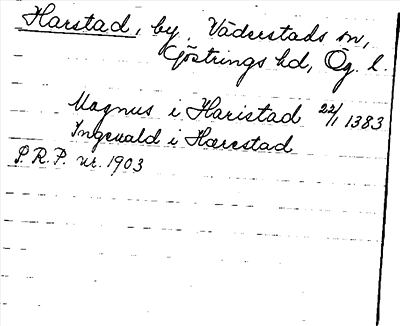 Harstad, by, Väderstads sn,
Göstrings hd, Ög. l.
Magnus i Haristad 22/1 1383
Ingevald i Hærestad
S.R.P. nr. 1903